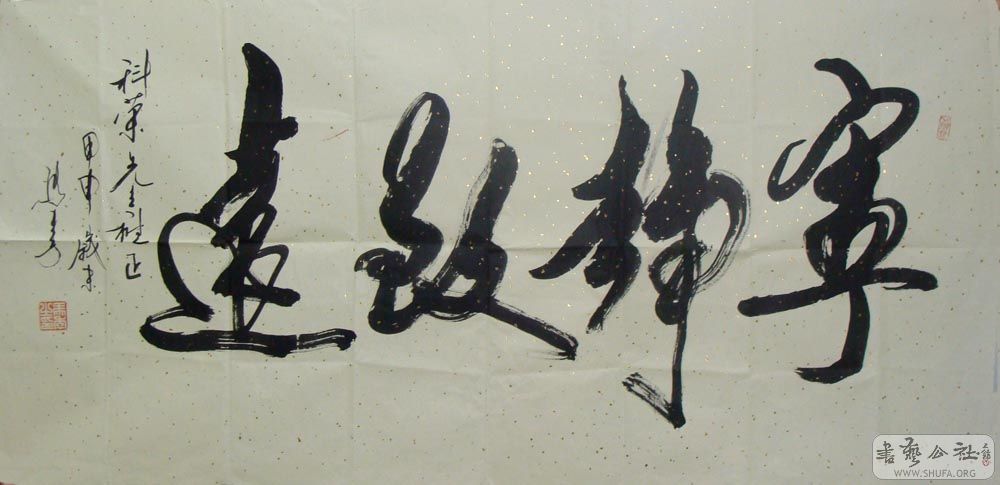 寧靜致遠
科荣先生雅正
甲申歲末
書藝公社
WWW.SHUFA.ORG